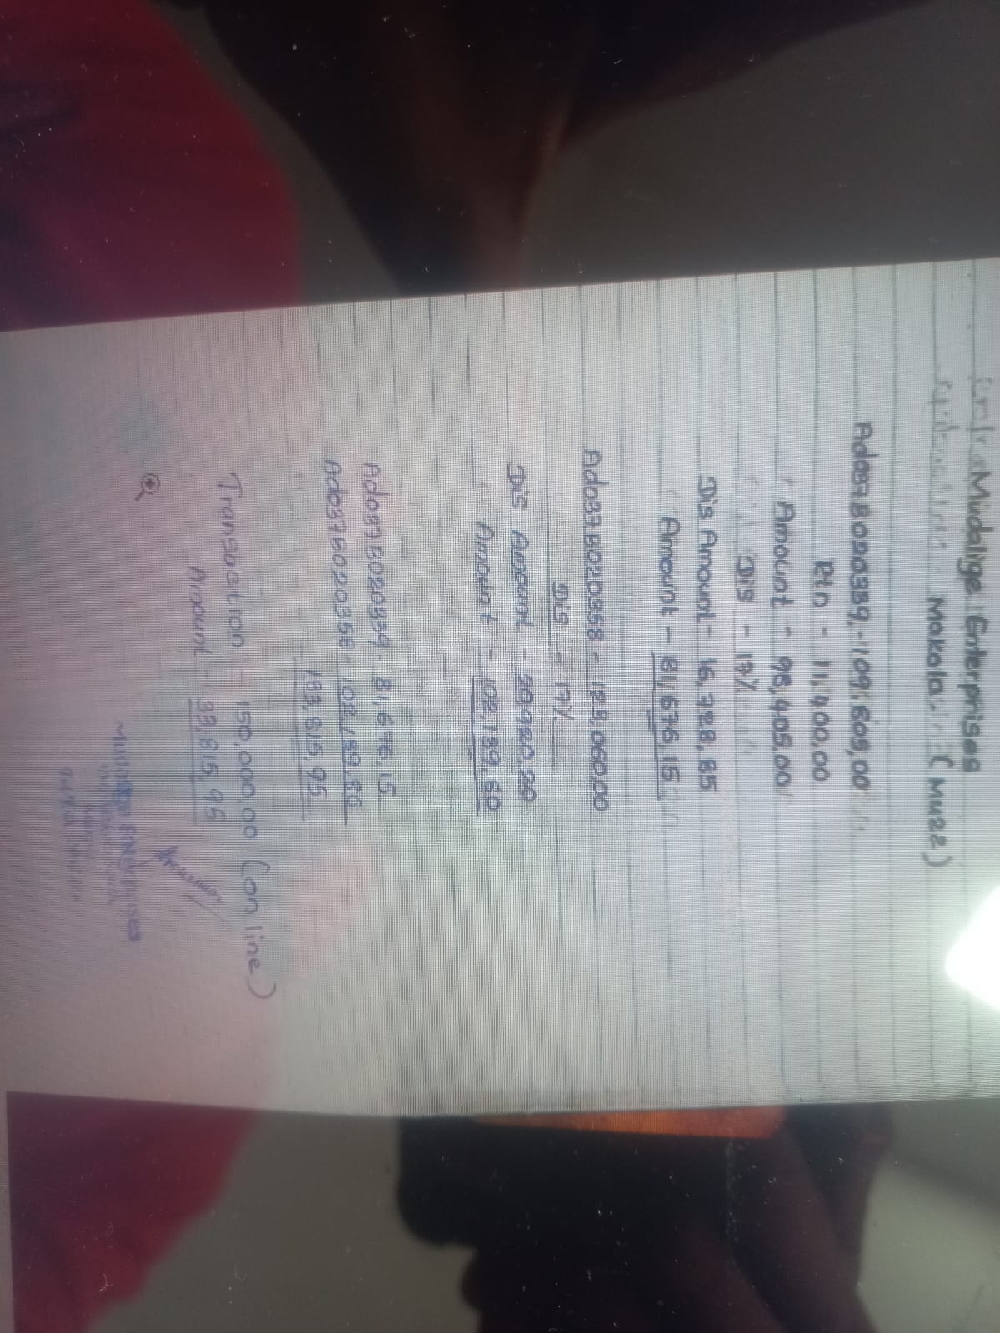 Mudalige Enterprises
Makola. (Muzz)
Ado378020339 - 109,805,00
Rtn - 11,400,00
Amount - 98,405,00
Dis - 17%
Dis Amount - 16,728,85
Amount - 81,676,15
Ado378020358 - 123,060.00
Dis - 17%
Dis Amount - 20,920,20
Amount - 102,139,80
Ado378020339 - 81,676,15
Ado378020358 - 102,139,80
183,815,95
Transaction - 150,000,00 (on line)
Amount - 33,815,95